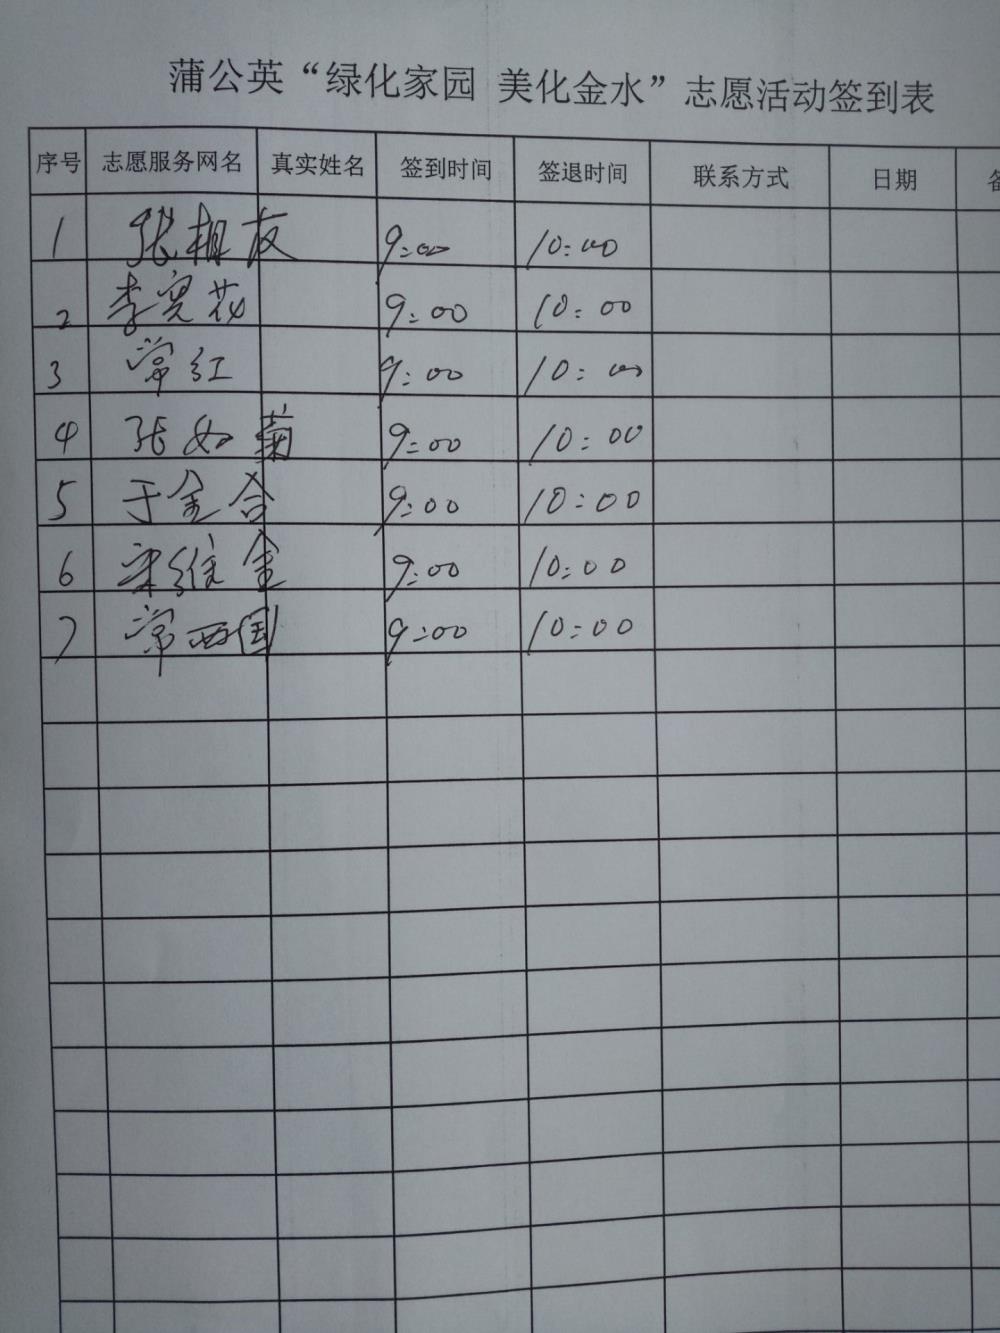 蒲公英“绿化家园 美化金水”志愿活动签到表
序号 志愿服务网名 真实姓名 签到时间 签退时间 联系方式 日期 备
1 张相友 9:00 10:00
2 李宪花 9:00 10:00
3 常红 9:00 10:00
4 张如菊 9:00 10:00
5 于金合 9:00 10:00
6 宋维金 9:00 10:00
7 常西国 9:00 10:00